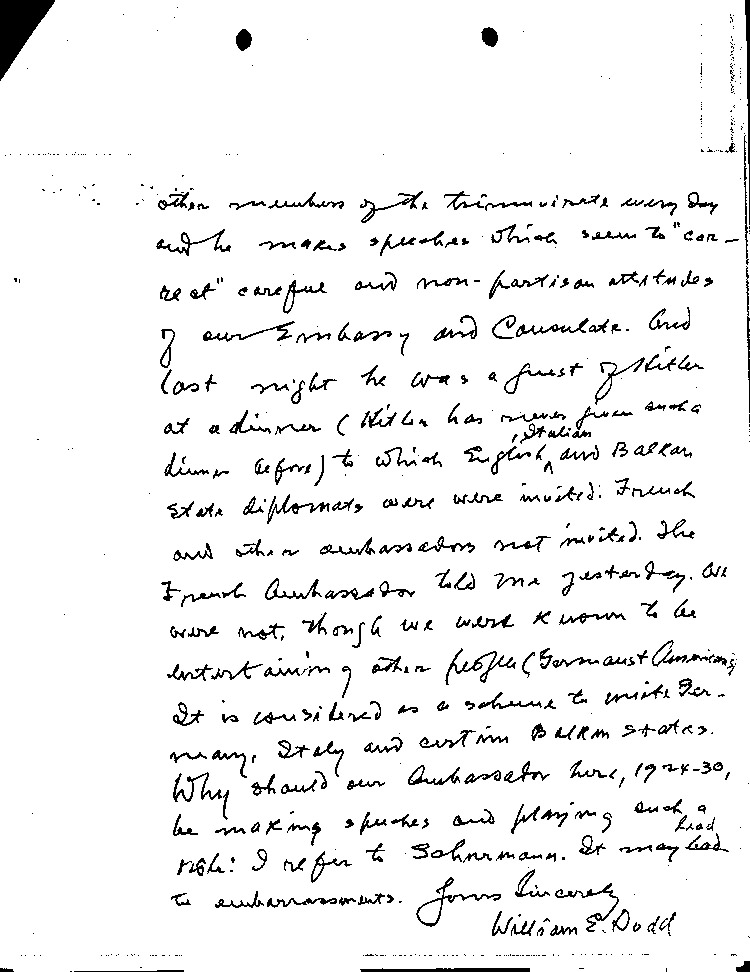 other members of the triumvirate every day
and he makes speeches which seem to "cor-
rect" careful and non-partisan attitudes
of our Embassy and Consulate. And
last night he was a guest of Hitler
at a dinner (Hitler has never given such a
dinner before) to which English, Italian and Balkan
State diplomats were were invited. French
and other ambassadors not invited. The
French Ambassador told me yesterday. We
were not, though we were known to be
entertaining other people (Germans & Americans)
It is considered as a scheme to unite Ger-
many, Italy and certain Balkan States.
Why should our Ambassador here, 1924-30,
be making speeches and playing such a
role: I refer to Schurmann. It may lead
lead
to embarrassments. Yours Sincerely
William E. Dodd